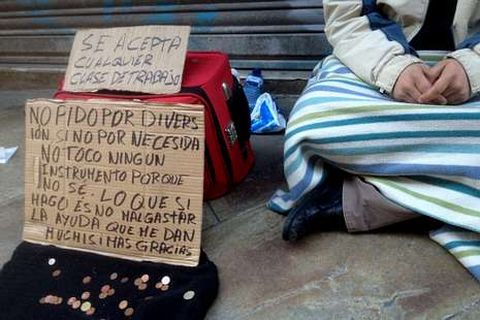 SE ACEPTA
CUALQUIER
CLASE DE TRABAJO
NO PIDO POR DIVERS
IÓN SI NO POR NECESIDA
NO TOCO NINGÚN
INSTRUMENTO PORQUE
NO SE. LO QUE SI
HAGO ES NO MALGASTAR
LA AYUDA QUE ME DAN
MUCHISIMAS GRACIAS